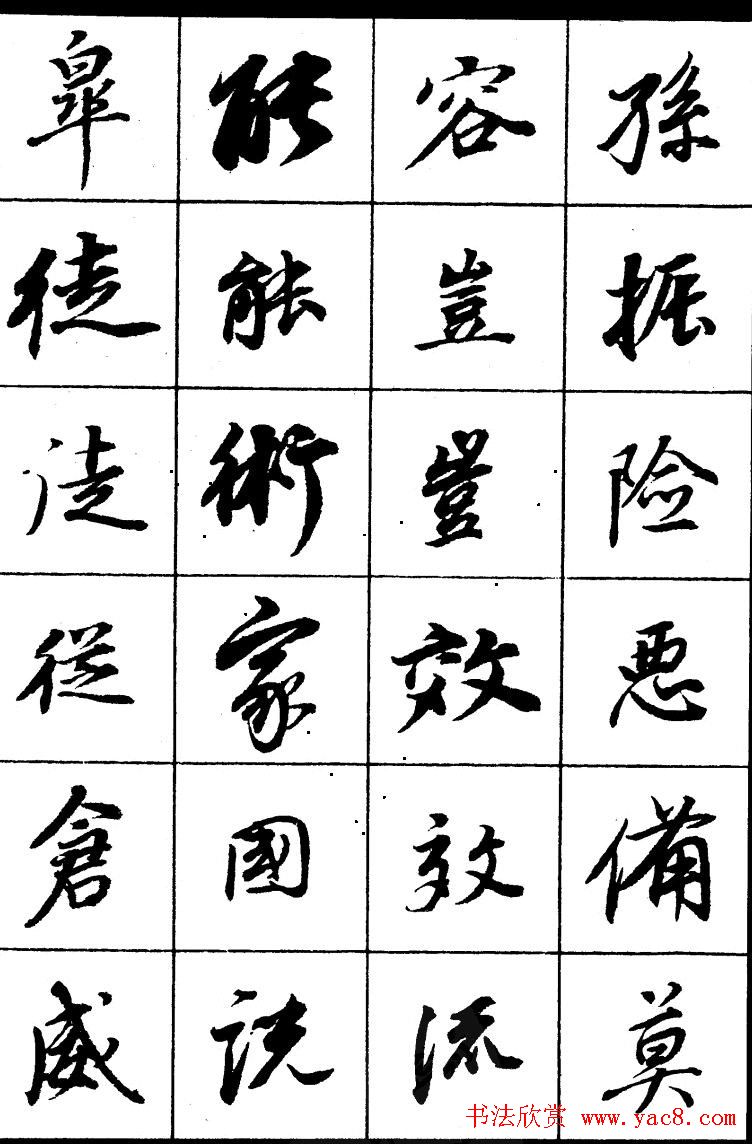 孫振險悪備莫
容豈豈效效流
能能術家國説
皋徒徒從倉威
书法欣赏 www.yac8.com